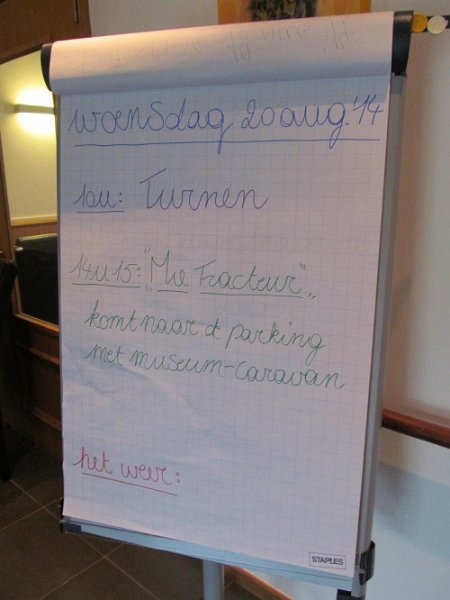 woensdag 20 aug. '14
10u: Turnen
14u15: "Mie Tracteur"
komt naar de parking
met museum-caravan
het weer:
STAPLES